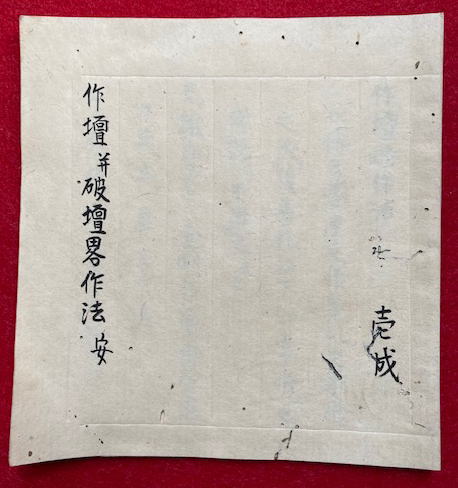 作壇并破壇畧作法 安
壱成